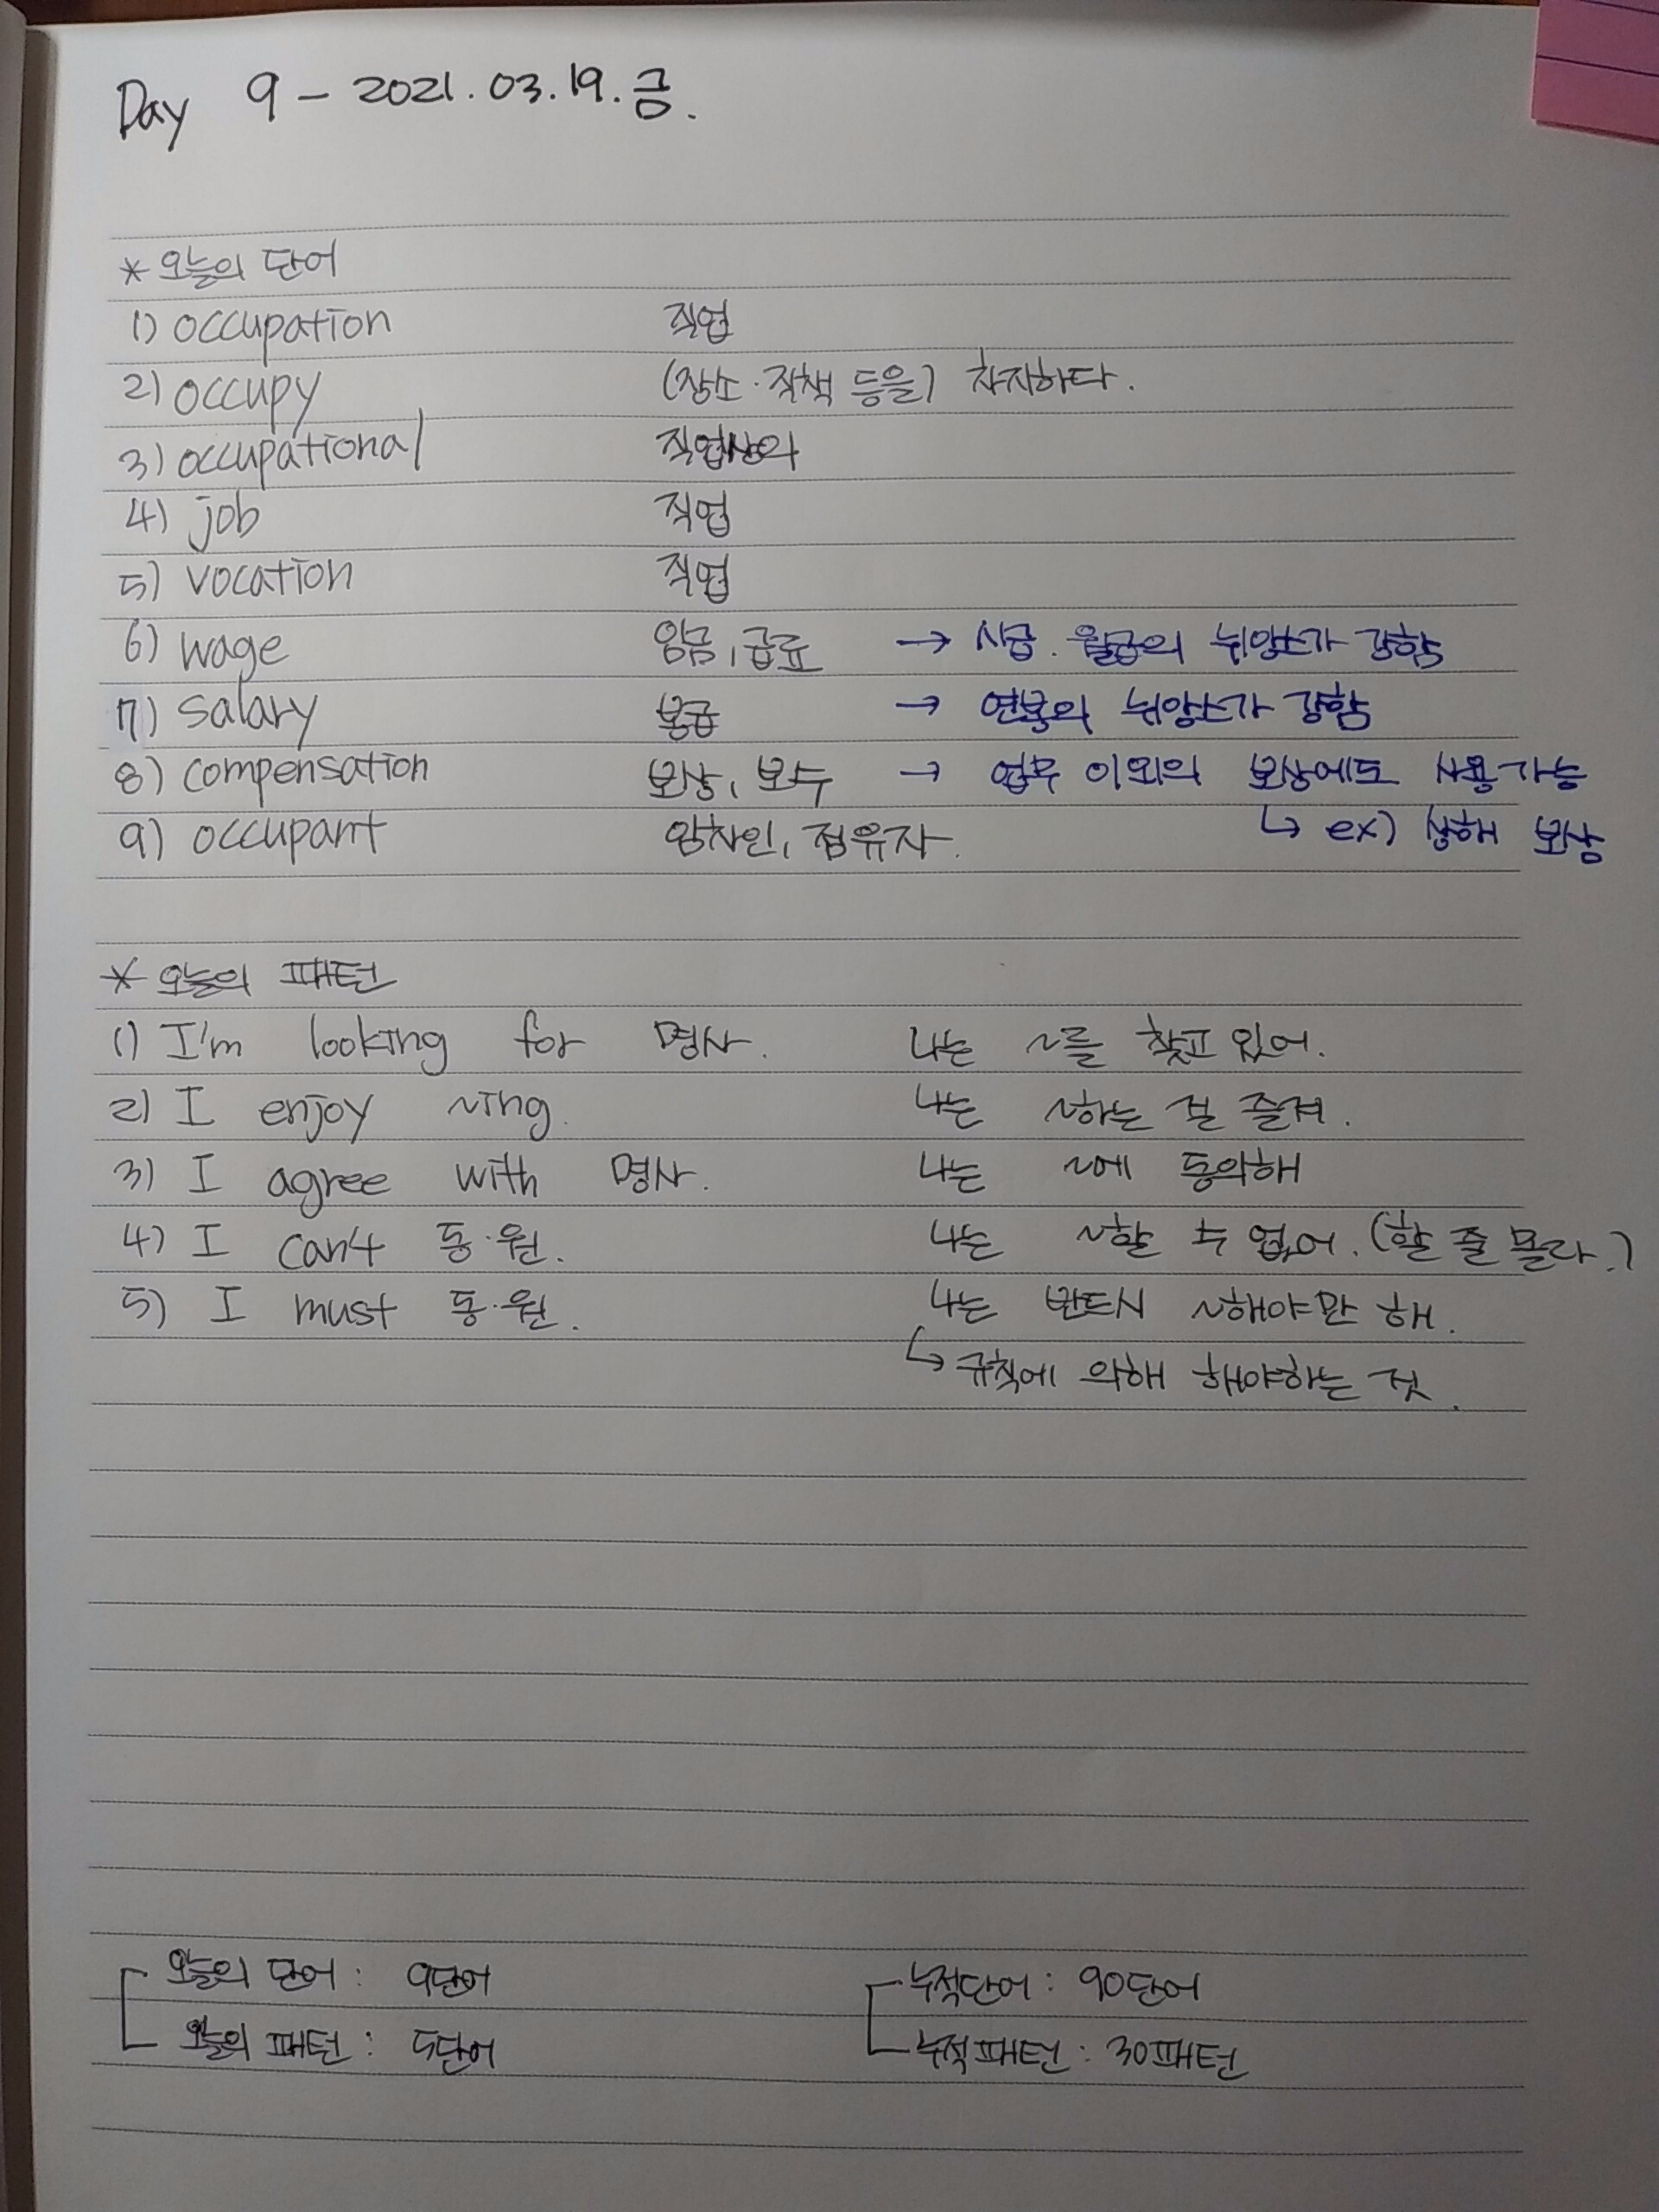 Day 9 - 2021.03.19.금.
* 오늘의 단어
1) occupation 직업
2) occupy (장소·직책 등을) 차지하다.
3) occupational 직업상의
4) job 직업
5) vocation 직업
6) wage 임금, 급료 → 시급·월급의 뉘앙스가 강함
7) salary 봉급 → 연봉의 뉘앙스가 강함
8) compensation 보상, 보수 → 업무 이외의 보상에도 사용가능
9) occupant 임차인, 점유자. ↳ ex) 상해 보상
* 오늘의 패턴
1) I'm looking for 명사. 나는 ~를 찾고 있어.
2) I enjoy ~ing. 나는 ~하는 걸 즐겨.
3) I agree with 명사. 나는 ~에 동의해
4) I can't 동·원. 나는 ~할 수 없어. (할 줄 몰라.)
5) I must 동·원. 나는 반드시 ~해야만 해.
↳ 규칙에 의해 해야하는 것.
오늘의 단어 : 9단어 누적단어 : 90단어
오늘의 패턴 : 5단어 누적패턴 : 30패턴